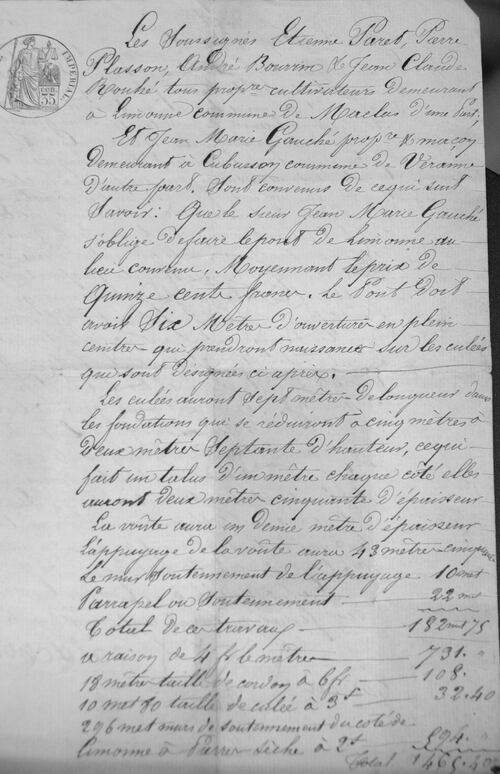 IMPERIAL
35
Les Soussignés Etienne Paret, Pierre
Plasson, André Bourrin & Jean Claude
Rouché tous propre cultivateurs demeurant
à Limonne commune de Maclas d'une part,
Et Jean Marie Gauché propre & maçon
demeurant à Cubusson commune de Véranne
D'autre part. Sont convenus de cequi suit
Savoir: Que le sieur Jean Marie Gauché
s'oblige de faire le pont de Limonne au
lieu convenu, Moyennant le prix de
Quinze cents francs. Le Pont doit
avoir Six Mètres d'ouverture en plein
centre qui prendront naissance sur les culées
qui sont designées ci après.
Les culées auront Sept mètres de longueur dans
les fondations qui se réduiront à cinq mètres à
Deux mètres Septante d'hauteur, cequi
fait un talus d'un mètre chaque côté elles
auront Deux mètres cinquante d'épaisseur
La voûte aura un demie mètre d'épaisseur
L'appuyage de la voûte aura 43 mètres cinquante
Le mur Soutennement de l'appuyage 10 met
Parrapel ou Soutennement 22 met
Total de ce travaux 182 met 75
à raison de 4 fr le mètre 731. "
18 mètres taille de cordon à 6 fr 108.
10 met 80 taille de culée à 3 f 32.40
296 met murs de soutennement du coté de
Limonne à Pierre Sèche à 2 f 594. "
Total 1465.40